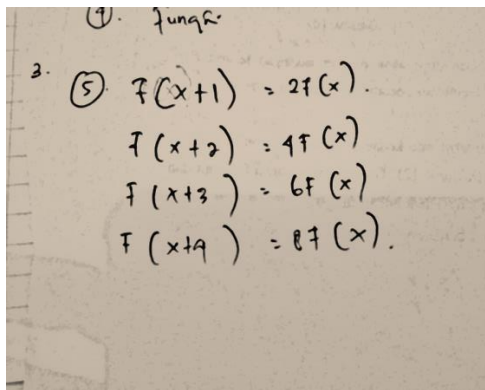 4. fungsi
3.
5 F(x+1) = 2F(x).
F(x+2) = 4F(x)
F(x+3) = 6F(x)
F(x+4) = 8F(x).